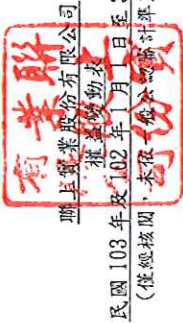 聯上實業股份有限公司
權益變動表
民國103年及102年1月1日至
(僅經核閱,未依一般公認審計準